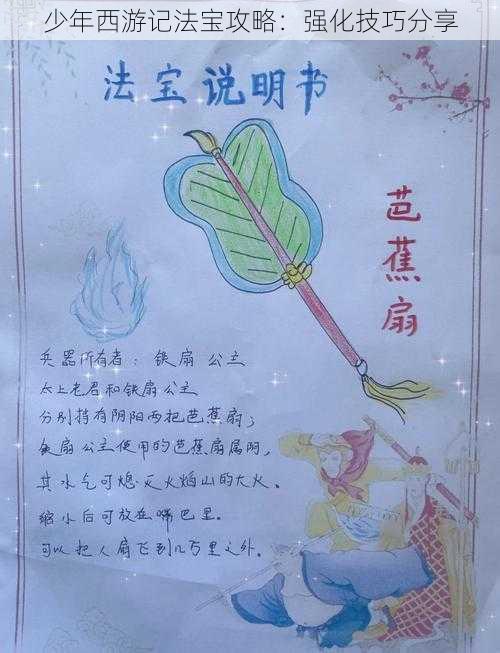 少年西游记法宝攻略：强化技巧分享
法宝说明书
芭蕉扇
兵器所有者：铁扇公主
太上老君和铁扇公主
分别持有阴阳两把芭蕉扇；
铁扇公主使用的芭蕉扇属阴，
其水气可熄灭火焰山的大火。
缩小后可放在嘴巴里。
可以把人扇飞到几万里之外。